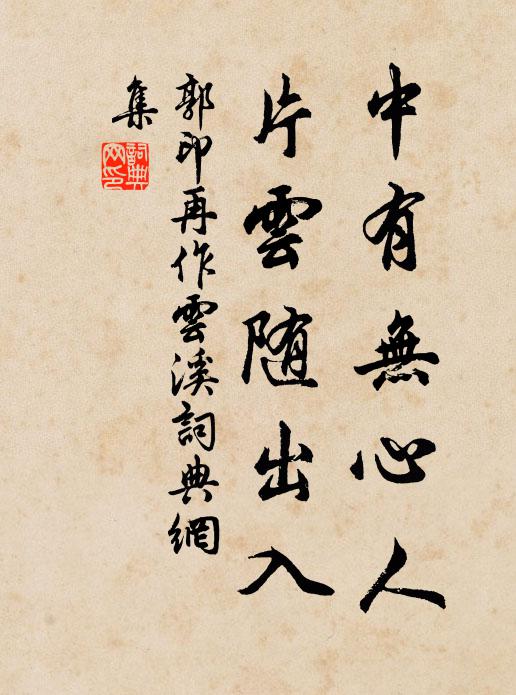 中有無心人
片雲随出入
郭印再作雲溪詞典網
集
詞典
网印